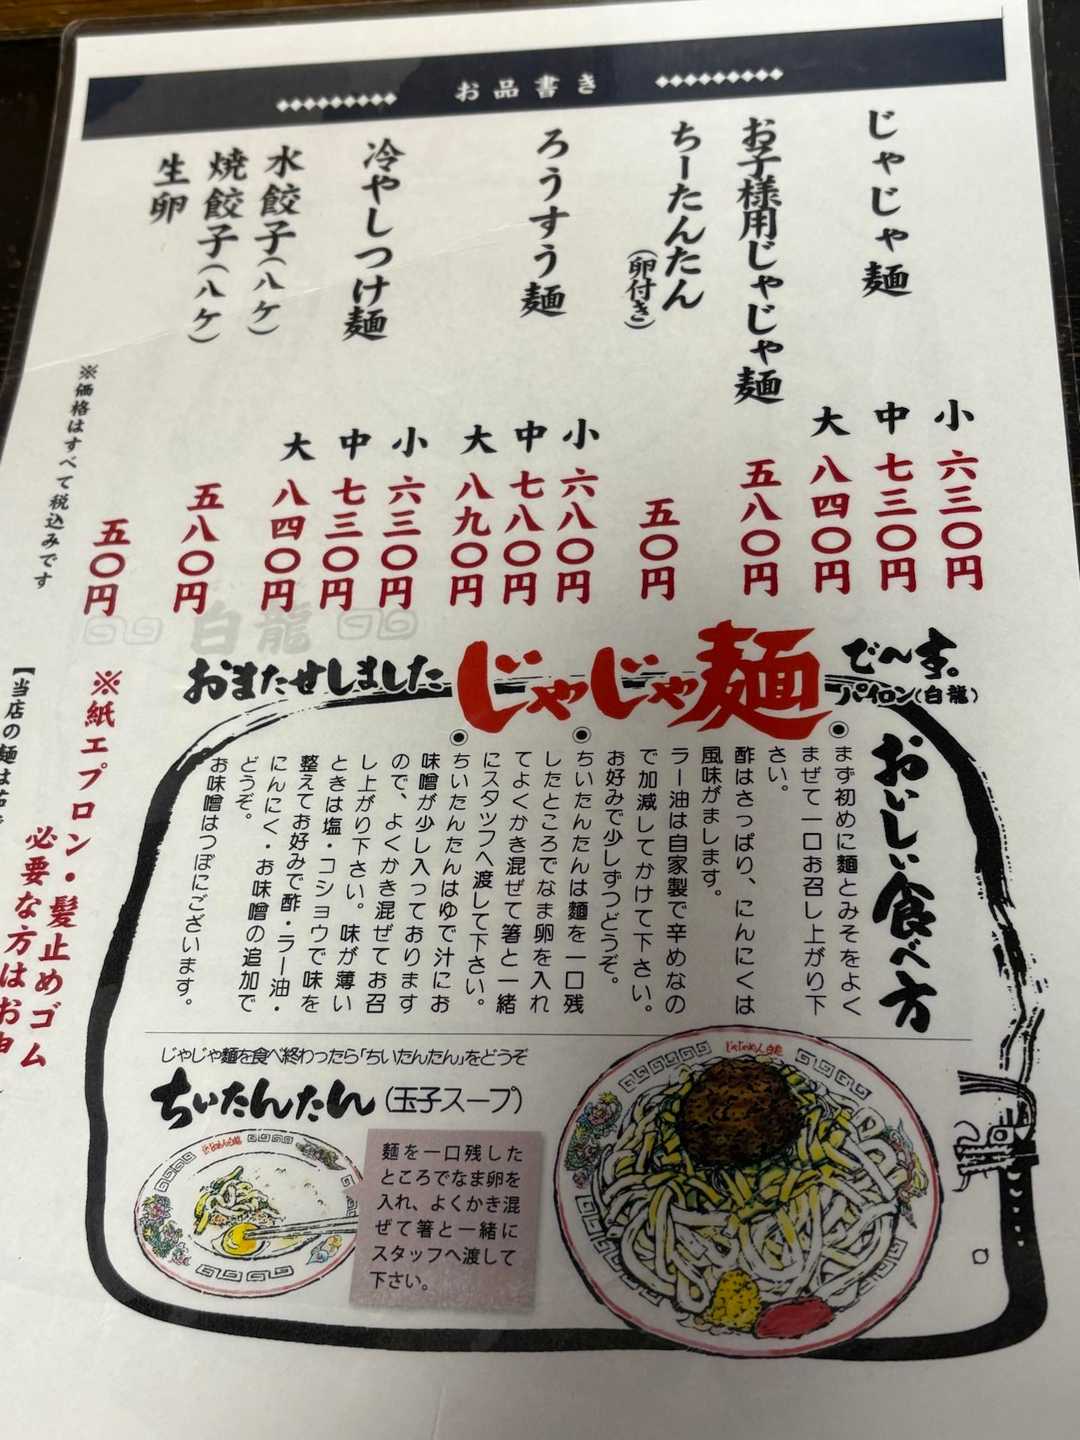 お品書き
じゃじゃ麺
小 六三〇円
中 七三〇円
大 八四〇円
お子様用じゃじゃ麺
五八〇円
ちーたんたん
(卵付き)
五〇円
ろうすう麺
小 六八〇円
中 七八〇円
大 八九〇円
冷やしつけ麺
小 六三〇円
中 七三〇円
大 八四〇円
水餃子(八ケ)
焼餃子(八ケ)
五八〇円
生卵
五〇円
※価格はすべて税込みです
白龍
おまたせしました
じゃじゃ麺
で〜す。
パイロン(白龍)
おいしい食べ方
まず初めに麺とみそをよく
まぜて一口お召し上がり下
さい。
酢はさっぱり、にんにくは
風味がまします。
ラー油は自家製で辛めなの
で加減してかけて下さい。
お好みで少しずつどうぞ。
ちいたんたんは麺を一口残
したところでなま卵を入れ
てよくかき混ぜて箸と一緒
にスタッフへ渡して下さい。
ちいたんたんはゆで汁にお
味噌が少し入っております
ので、よくかき混ぜてお召
し上がり下さい。味が薄い
ときは塩・コショウで味を
整えてお好みで酢・ラー油・
にんにく・お味噌の追加で
どうぞ。
お味噌はつぼにございます。
じゃじゃ麺を食べ終わったら「ちいたんたん」をどうぞ
ちいたんたん(玉子スープ)
麺を一口残した
ところでなま卵を
入れ、よくかき混
ぜて箸と一緒に
スタッフへ渡して
下さい。
じゃじゃめん白龍
じゃじゃめん白龍
※紙エプロン・髪止めゴム
必要な方はお申
【当店の麺は